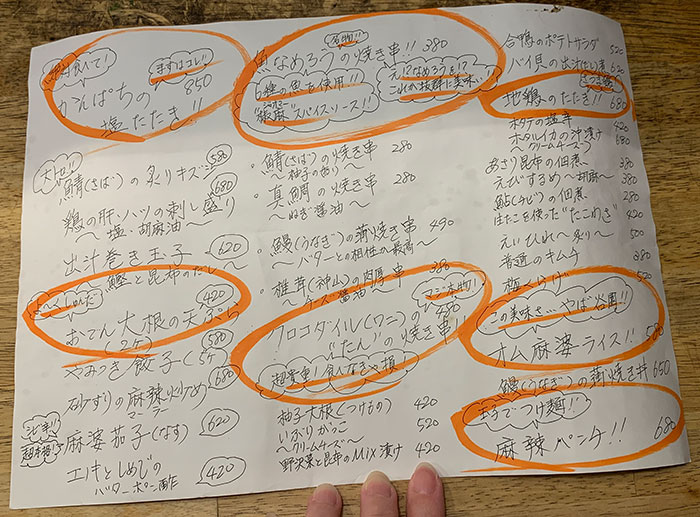 絶対食べて!
まずはコレ!!
かんぱちの 850
塩たたき!!
大トロ!!
鯖(さば)の炙りキズシ 580
鶏の肝・ハツの刺し盛り 680
〜塩・胡麻油〜
出汁巻き玉子 620
〜鰹と昆布のだし〜
よ〜くしゅんだ
420
おでん大根の天ぷら
(2ケ)
やみつき餃子(5ケ) 580
砂ずりの麻辣火炒め 680
マーラー
シビ辛!!
超本格!?
麻婆茄子(なす) 620
エリンギとしめじの
バターポン酢 420
名物!!
魚なめろうの焼き串!! 380
6種の魚を使用!!
スパイスソース!!
え!?なめろうを!?
これが抜群に美味い!!
・鯖(さば)の焼き串 280
〜柚子の香り〜
・真鯛の焼き串 280
〜ねぎ醤油〜
・鰻(うなぎ)の蒲焼き串 490
〜バターとの相性が最高〜
・椎茸(神山)の肉厚串 380
〜チーズ醤油〜
マニア本物!!
クロコダイル(ワニ)の 580
"たん"の焼き串!!
超貴重!食べなきゃ損!
柚子大根(つけもの) 420
いぶりがっこ 520
〜クリームチーズ〜
野沢菜と昆布のMix漬け 420
合鴨のポテトサラダ 520
バイ貝の出汁煮 620
地鶏のたたき!! 680
ホタテの塩辛 420
ホタルイカの沖漬け 680
クリームチーズ
あさり昆布の佃煮 380
えびするめ〜胡麻〜 380
鮎(あゆ)の佃煮 280
生たこを使った"たこめき" 420
えいひれ〜炙り〜 500
普通のキムチ 380
極くらげ 520
この美味さ…やば谷園!!
オム麻婆ライス!! 580
鰻(うなぎ)の蒲焼き丼 650
玉子でつけ麺!!
麻辣ペンチ!! 680